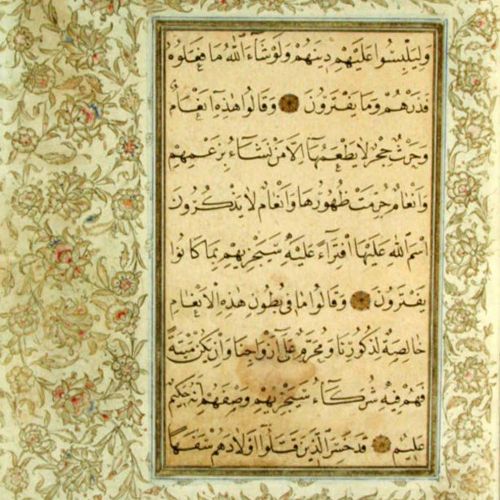 وَلِيَلْبِسُوا عَلَيْهِمْ دِينَهُمْ وَلَوْ شَاءَ اللَّهُ مَا فَعَلُوهُ
فَذَرْهُمْ وَمَا يَفْتَرُونَ وَقَالُوا هٰذِهِ اَنْعَامٌ
وَحَرْثٌ حِجْرٌ لَا يَطْعَمُهَا اِلَّا مَنْ نَشَاءُ بِزَعْمِهِمْ
وَاَنْعَامٌ حُرِّمَتْ ظُهُورُهَا وَاَنْعَامٌ لَا يَذْكُرُونَ
اسْمَ اللَّهِ عَلَيْهَا افْتِرَاءً عَلَيْهِ سَيَجْزِيهِمْ بِمَا كَانُوا
يَفْتَرُونَ وَقَالُوا مَا فِي بُطُونِ هٰذِهِ الْاَنْعَامِ
خَالِصَةٌ لِذُكُورِنَا وَمُحَرَّمٌ عَلٰى اَزْوَاجِنَا وَاِنْ يَكُنْ مَيْتَةً
فَهُمْ فِيهِ شُرَكَاءُ سَيَجْزِيهِمْ وَصْفَهُمْ اِنَّهُ حَكِيمٌ
عَلِيمٌ قَدْ خَسِرَ الَّذِينَ قَتَلُوا اَوْلَادَهُمْ سَفَهًا